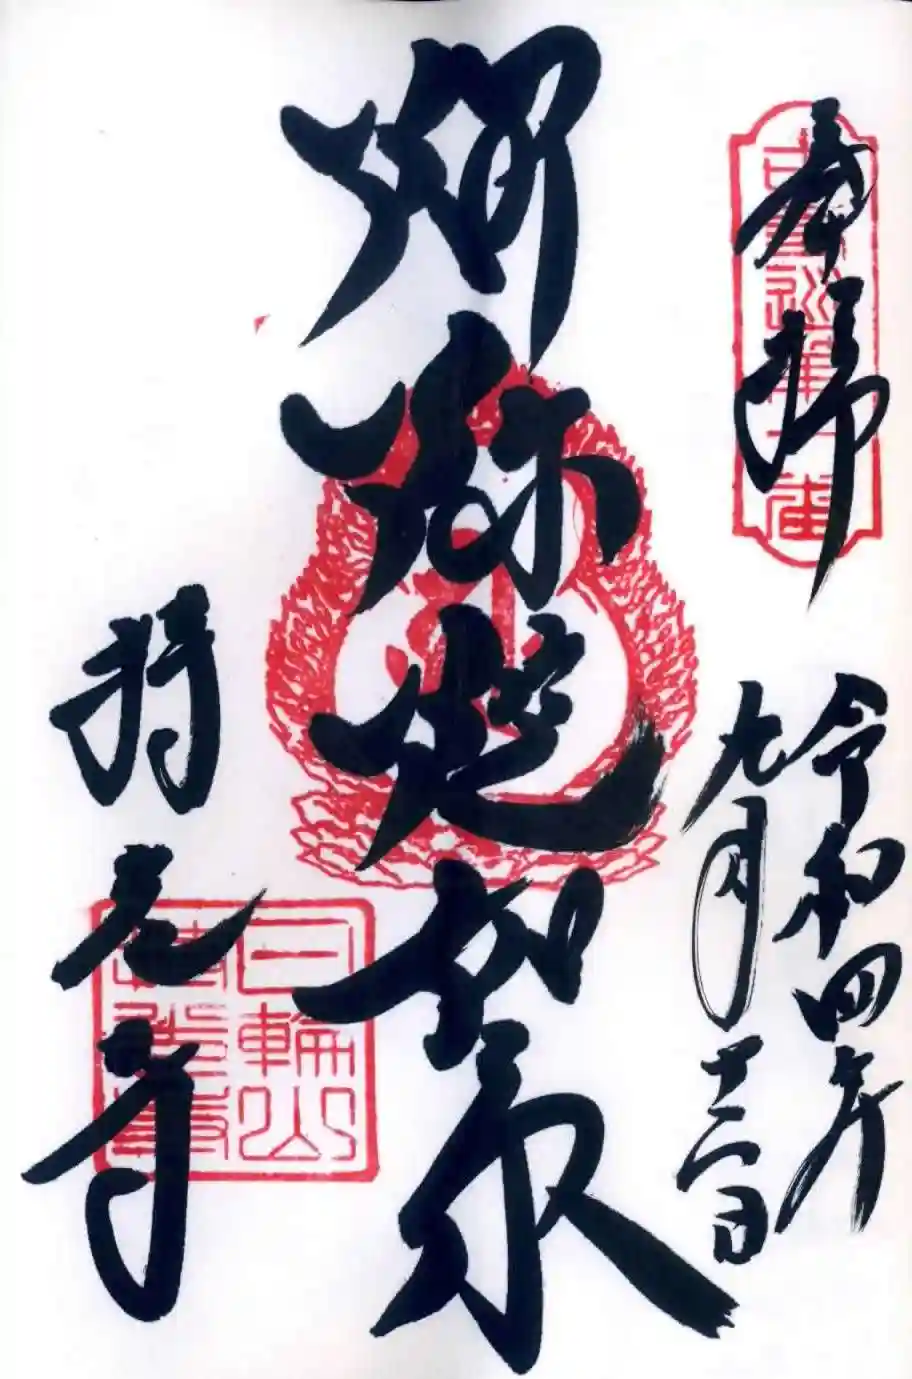 奉拝
令和四年
九月十二日
阿弥陀如来
日輪山
持光寺